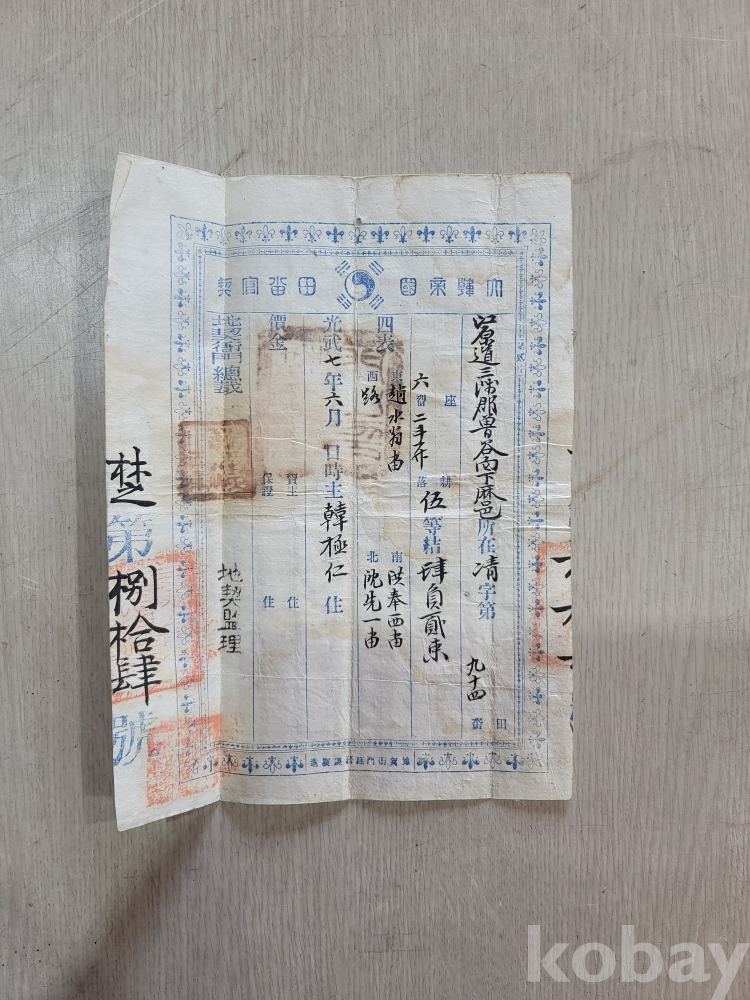 大韓帝國田畓官契
原道三陟郡魯谷面下麻邑所在 淸字第九十四 田畓
六 座 耕落 伍等結肆負貳束
四表 東趙水 畓 西路 南洪奉西畓 北沈先一畓
光武七年六月 日時主韓極仁 住
價金
賣主 住
保證 住
地契衙門總裁
地契監理
第捌拾肆號
kobay